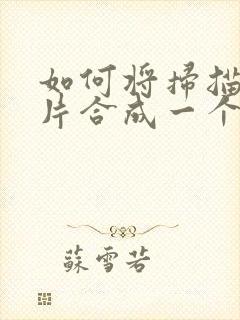 如何将掃描
片合成一个
蘇雪若